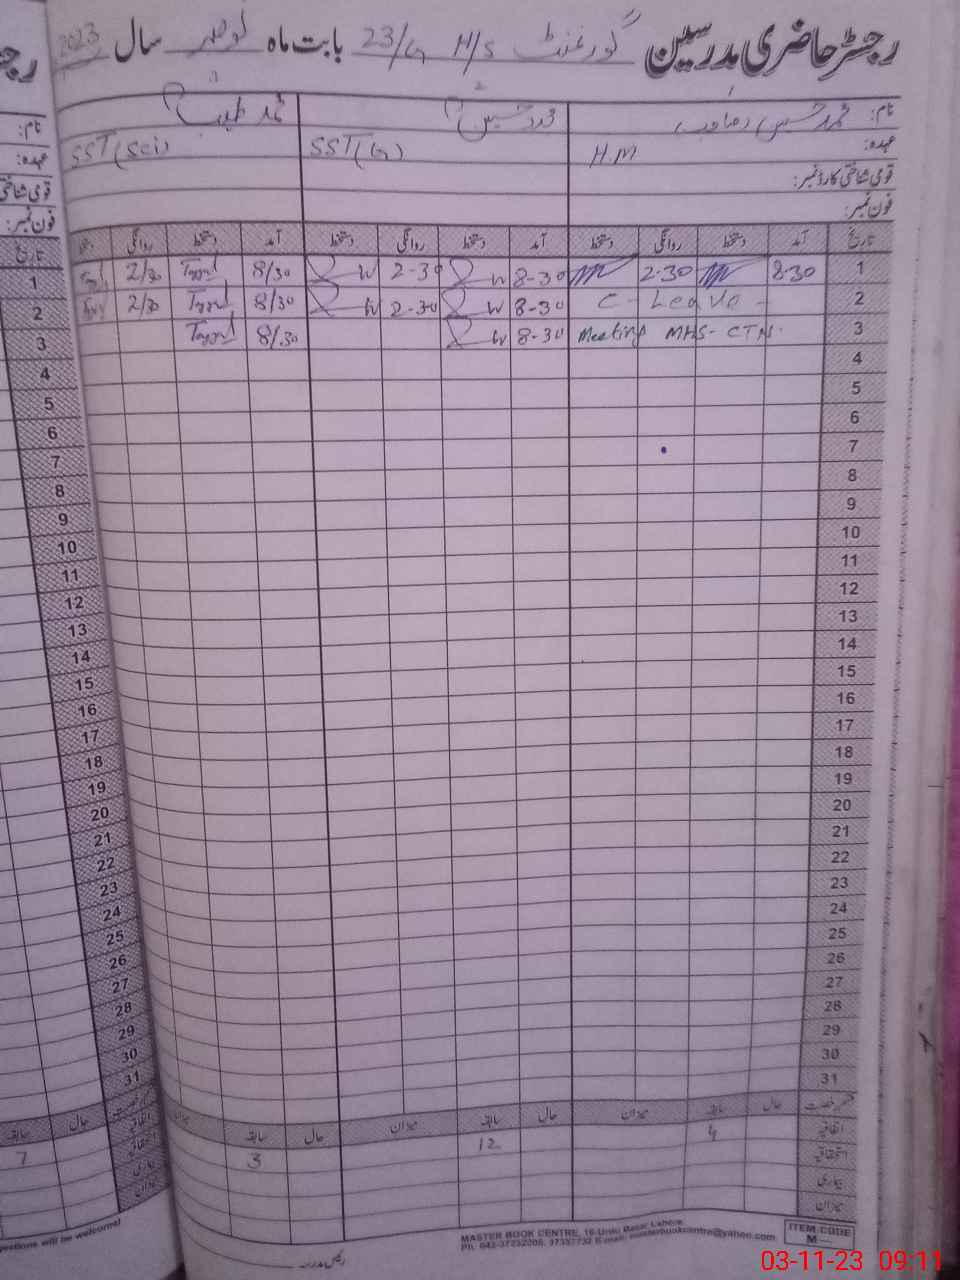 رجسٹر حاضری مدرسین گورنمنٹ H/S 23/G بابت ماہ نومبر سال 2023
نام: محمد حسین صاحب محمد طیب
عہدہ: H.M SST(G) SST(Sci)
قومی شناختی کارڈ نمبر:
فون نمبر:
تاریخ آمد دستخط روانگی دستخط آمد دستخط روانگی دستخط آمد دستخط روانگی دستخط
1 8-30 2-30 8-30 2-30 8/30 Tayyab 2/30
2 C-Leave 8-30 2-30 8/30 Tayyab 2/30
3 Meeting MHS-CTN. 8-30 8/30 Tayyab
4
5
6
7
8
9
10
11
12
13
14
15
16
17
18
19
20
21
22
23
24
25
26
27
28
29
30
31
حال سابقہ میزان حال سابقہ میزان حال سابقہ میزان
اتفاقیہ 4 12 3
استحقاقیہ
بیماری
میزان
رئیس مدرسہ
MASTER BOOK CENTRE, 16-Urdu Bazar Lahore
Ph. 042-37232208, 37357732 E-mail: masterbookcentre@yahoo.com
ITEM CODE
M
نام:
عہدہ:
قومی شناختی
فون نمبر:
تاریخ
1
2
3
4
5
6
7
8
9
10
11
12
13
14
15
16
17
18
19
20
21
22
23
24
25
26
27
28
29
30
31
حال سابقہ
7
estions will be welcome!
03-11-23 09:11